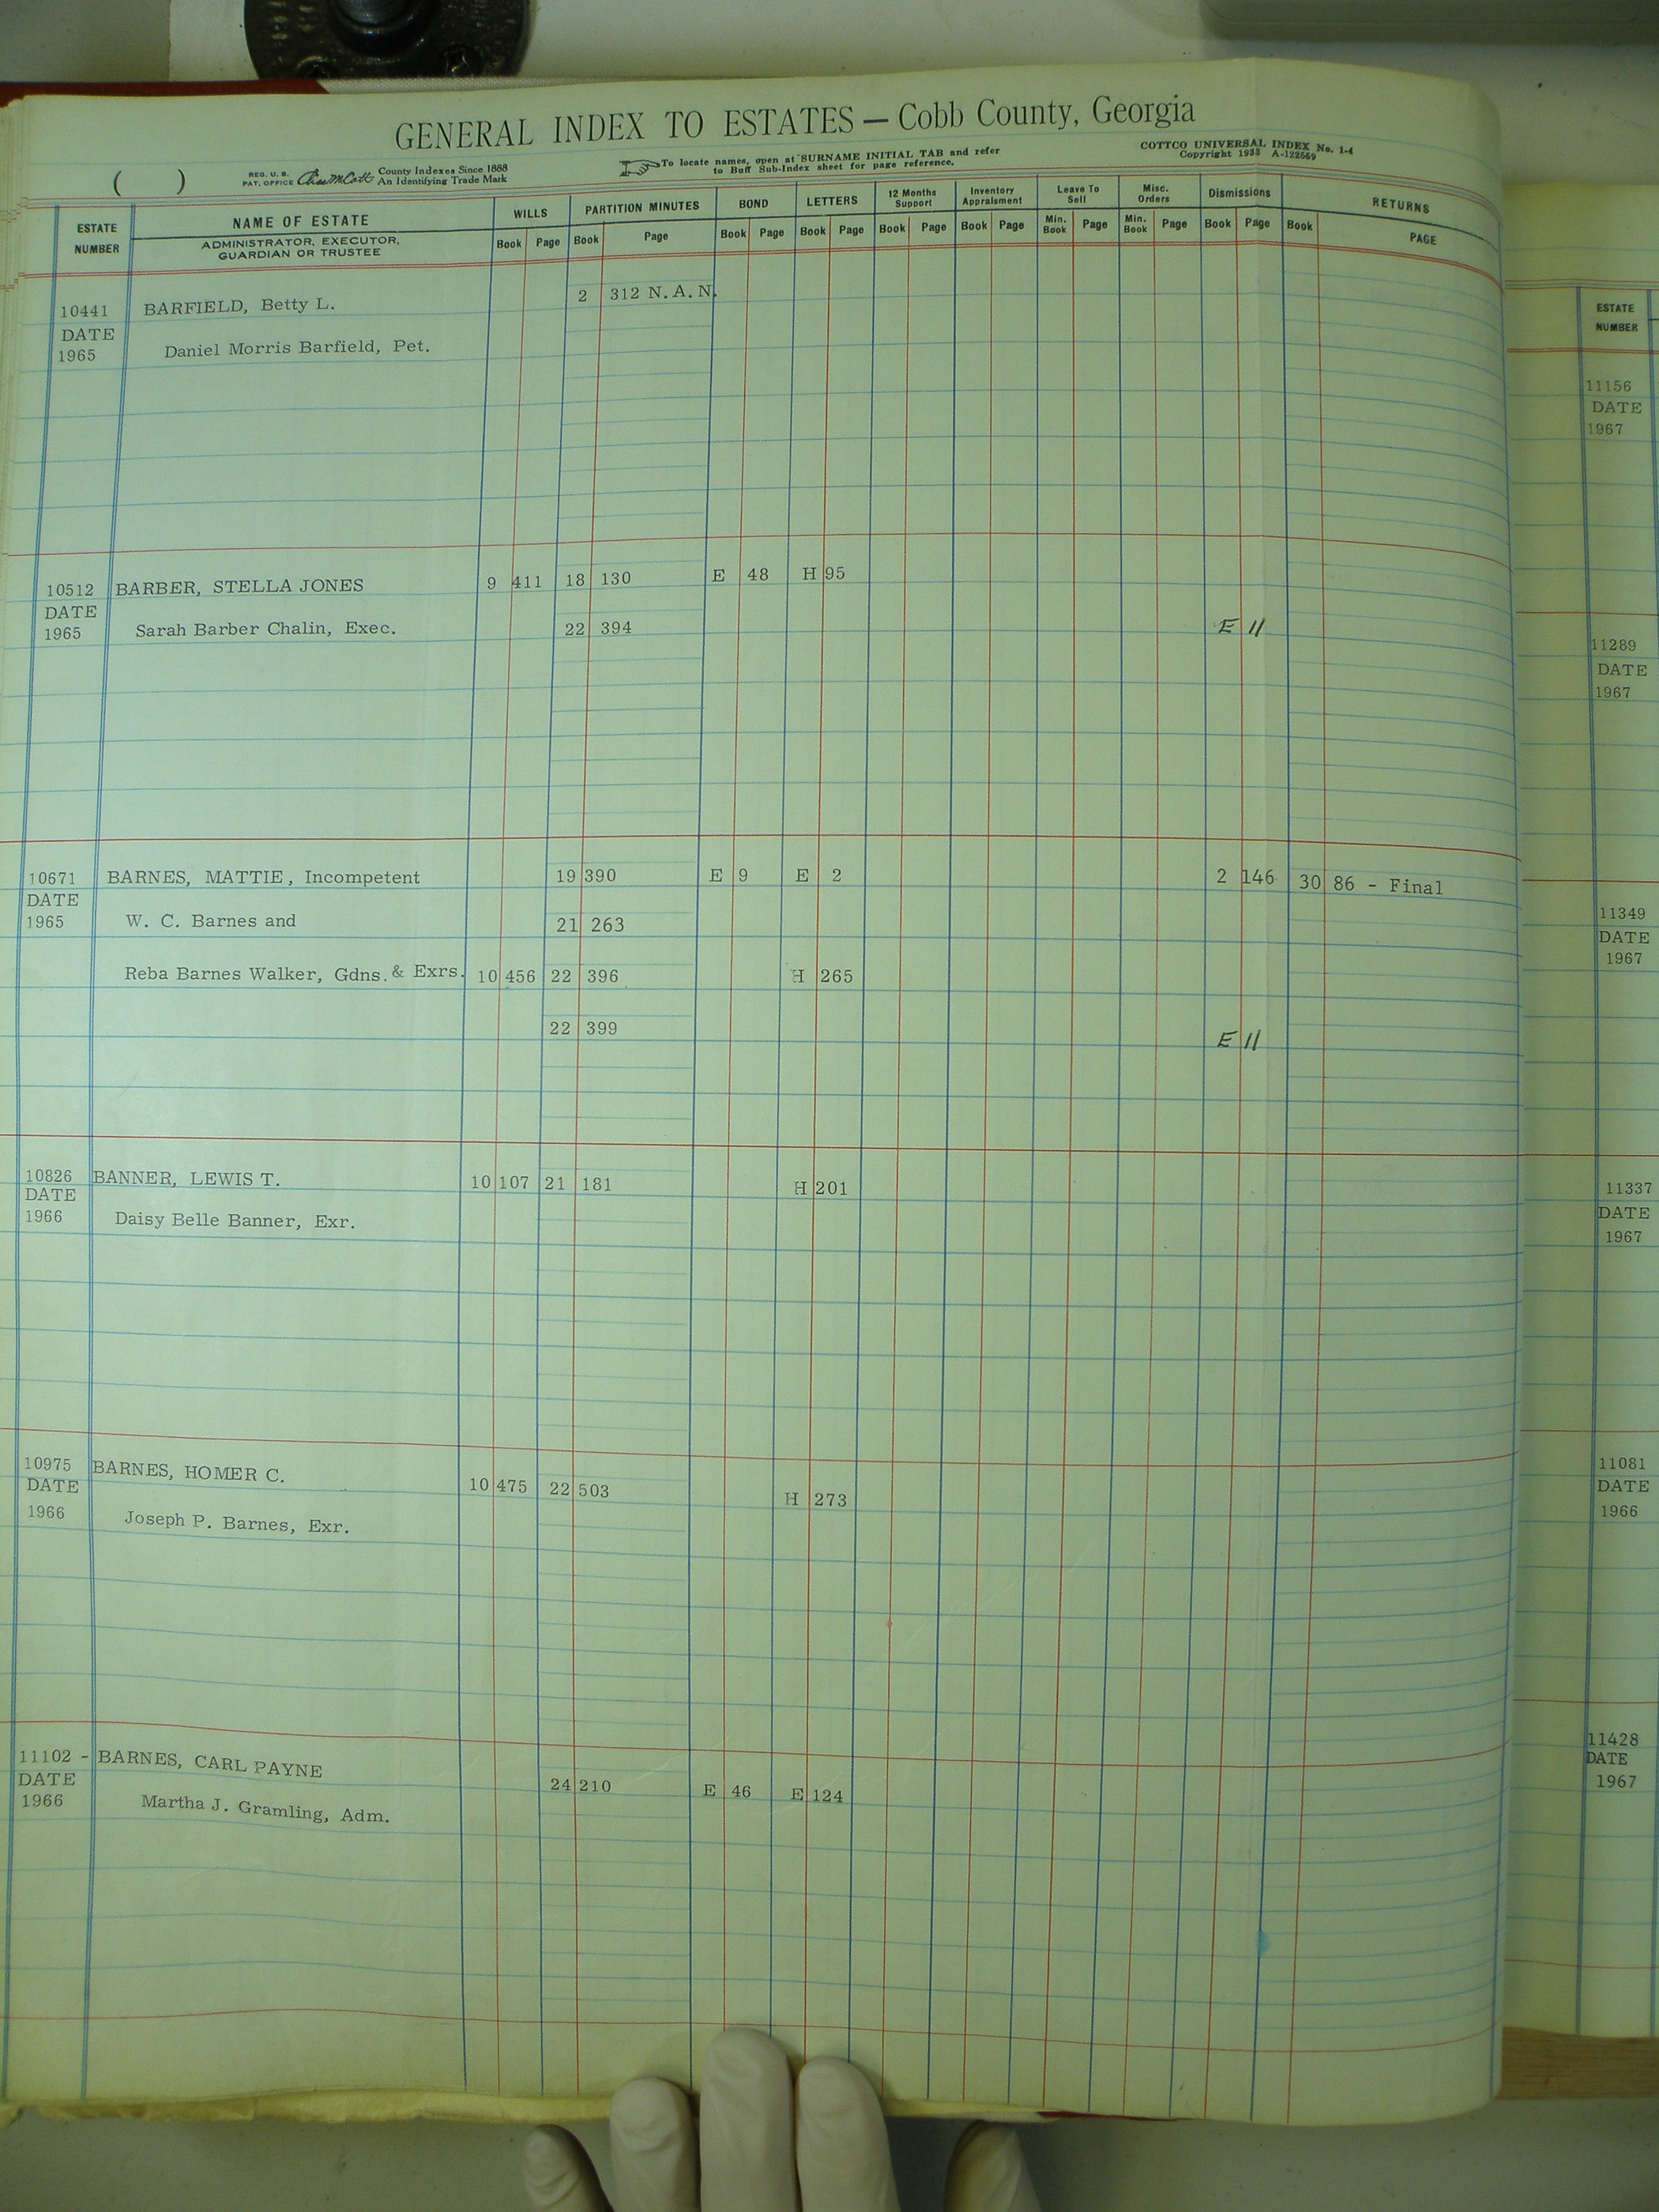 GENERAL INDEX TO ESTATES — Cobb County, Georgia
( ) REG. U. S. PAT. OFFICE County Indexes Since 1888 An Identifying Trade Mark
To locate names, open at SURNAME INITIAL TAB and refer to Buff Sub-Index sheet for page reference.
COTTCO UNIVERSAL INDEX No. 1-4
Copyright 1933 A-122569
ESTATE NUMBER NAME OF ESTATE WILLS PARTITION MINUTES BOND LETTERS 12 Months Support Inventory Appraisment Leave To Sell Misc. Orders Dismissions RETURNS
ADMINISTRATOR, EXECUTOR, GUARDIAN OR TRUSTEE Book Page Book Page Book Page Book Page Book Page Book Page Min. Book Page Min. Book Page Book Page Book PAGE
10441 BARFIELD, Betty L. 2 312 N.A.N.
DATE
1965 Daniel Morris Barfield, Pet.
10512 BARBER, STELLA JONES 9 411 18 130 E 48 H 95
DATE
1965 Sarah Barber Chalin, Exec. 22 394 E 11
10671 BARNES, MATTIE, Incompetent 19 390 E 9 E 2 2 146 30 86 - Final
DATE
1965 W. C. Barnes and 21 263
Reba Barnes Walker, Gdns. & Exrs. 10 456 22 396 H 265
22 399 E 11
10826 BANNER, LEWIS T. 10 107 21 181 H 201
DATE
1966 Daisy Belle Banner, Exr.
10975 BARNES, HOMER C. 10 475 22 503 H 273
DATE
1966 Joseph P. Barnes, Exr.
11102 - BARNES, CARL PAYNE 24 210 E 46 E 124
DATE
1966 Martha J. Gramling, Adm.
ESTATE
NUMBER
11156
DATE
1967
11289
DATE
1967
11349
DATE
1967
11337
DATE
1967
11081
DATE
1966
11428
DATE
1967